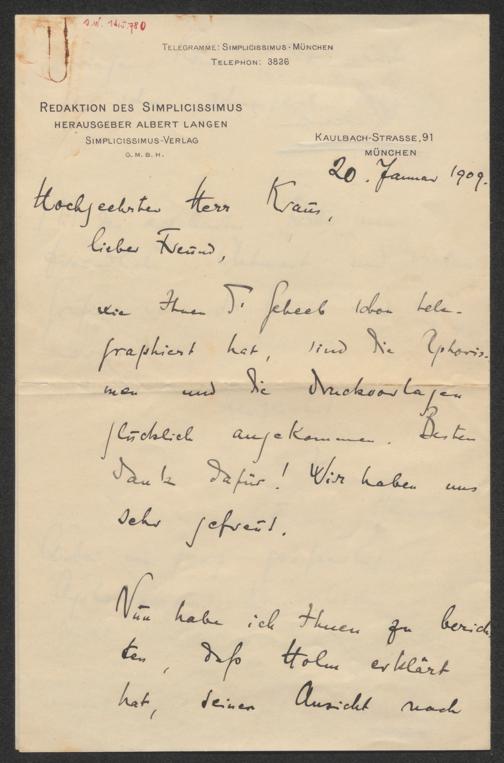 TELEGRAMME: SIMPLICISSIMUS - MÜNCHEN
TELEPHON: 3826
REDAKTION DES SIMPLICISSIMUS
HERAUSGEBER ALBERT LANGEN
SIMPLICISSIMUS-VERLAG
G. M. B. H.
KAULBACH-STRASSE, 91
MÜNCHEN
20. Januar 1909.
Hochgeehrter Herr Kraus,
lieber Freund,
wie Ihnen Dr Geheeb schon tele-
graphiert hat, sind die Aphoris-
men und die Druckvorlagen
glücklich angekommen. Besten
Dank dafür! Wir haben uns
sehr gefreut.
Nun habe ich Ihnen zu berich
ten, daß Holm erklärt
hat, seiner Ansicht nach